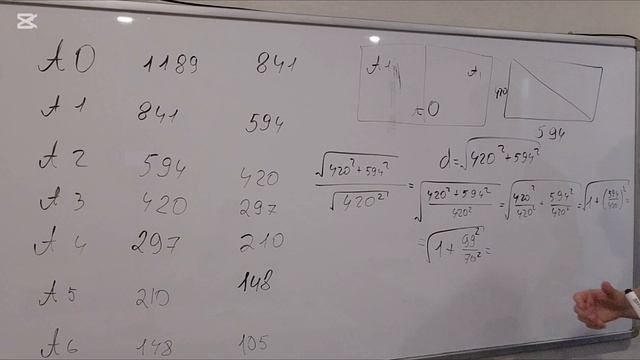 A0 1189 841
A1 841 594
A2 594 420
A3 420 297
A4 297 210
A5 210 148
A6 148 105
A1 A1
A0
420
594
d = √(420² + 594²)
√(420² + 594²) / √(420²) = √((420² + 594²) / 420²) = √(420² / 420² + 594² / 420²) = √(1 + (594 / 420)²) =
= √(1 + 99² / 70²) =